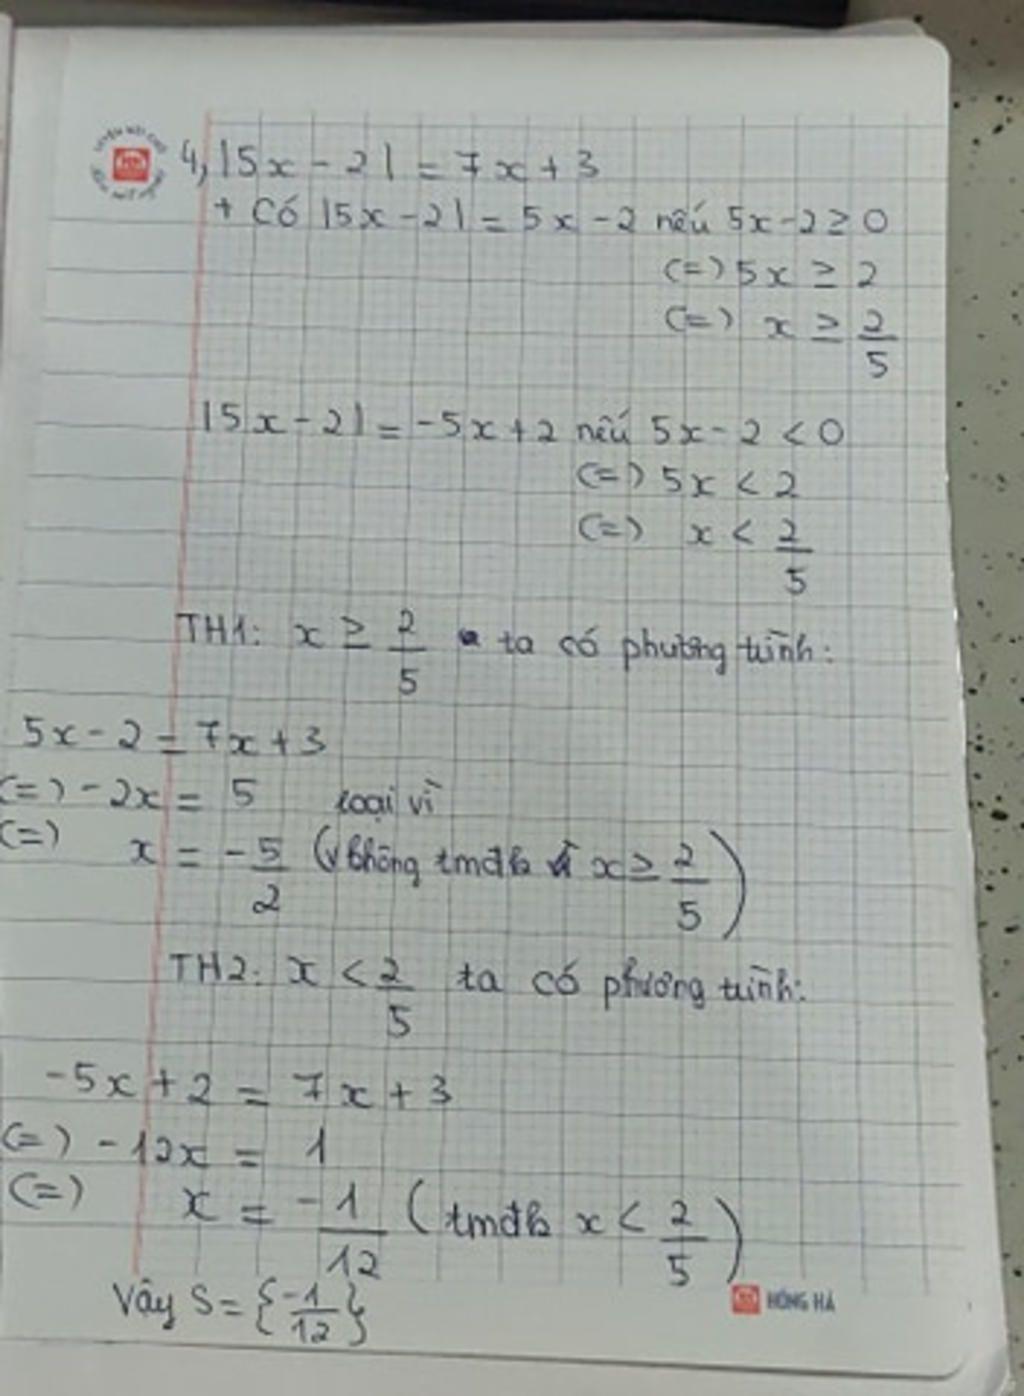 4, |5x - 2| = 7x + 3
+ Có |5x - 2| = 5x - 2 nếu 5x - 2 ≥ 0
(=) 5x ≥ 2
(=) x ≥ 2/5
|5x - 2| = -5x + 2 nếu 5x - 2 < 0
(=) 5x < 2
(=) x < 2/5
TH1: x ≥ 2/5 ta có phương trình:
5x - 2 = 7x + 3
(=) -2x = 5 loại vì
(=) x = -5/2 (không tmđk x ≥ 2/5)
TH2: x < 2/5 ta có phương trình:
-5x + 2 = 7x + 3
(=) -12x = 1
(=) x = -1/12 (tmđk x < 2/5)
Vậy S = {-1/12}
HỒNG HÀ